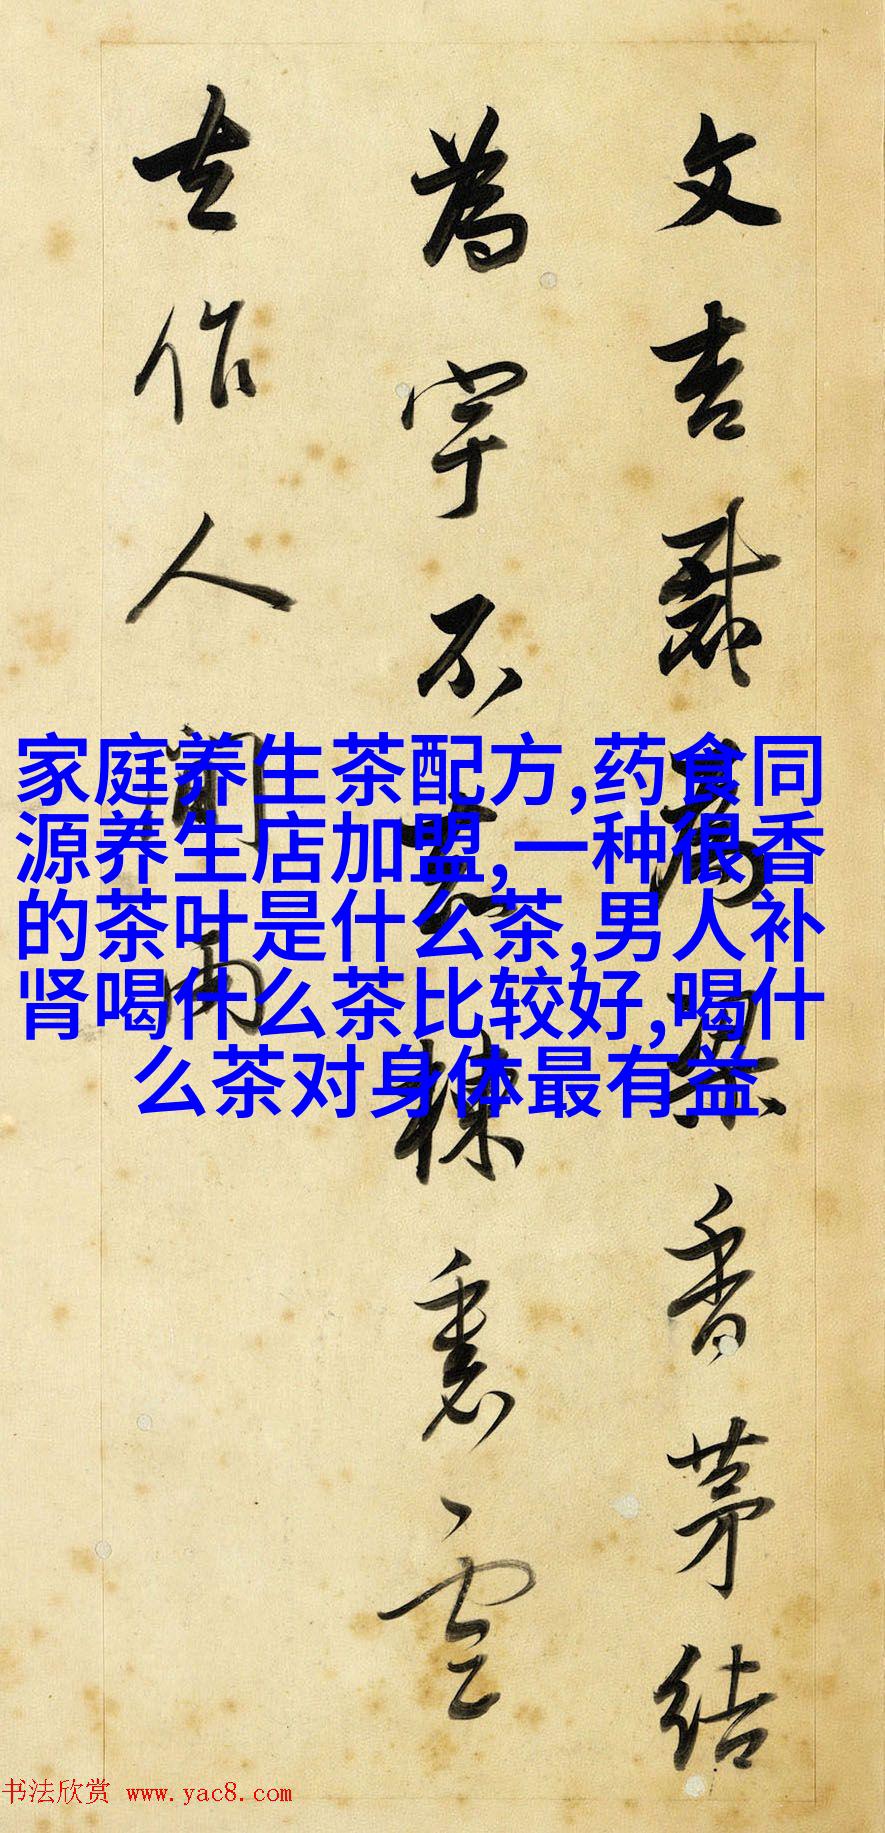 文杏裁為梁香茅結
為宇不知棟裏雲
去作人間雨
家庭养生茶配方,药食同
源养生店加盟,一种很香
的茶叶是什么茶,男人补
肾喝什么茶比较好,喝什
么茶对身体最有益
书法欣赏 www.yac8.com